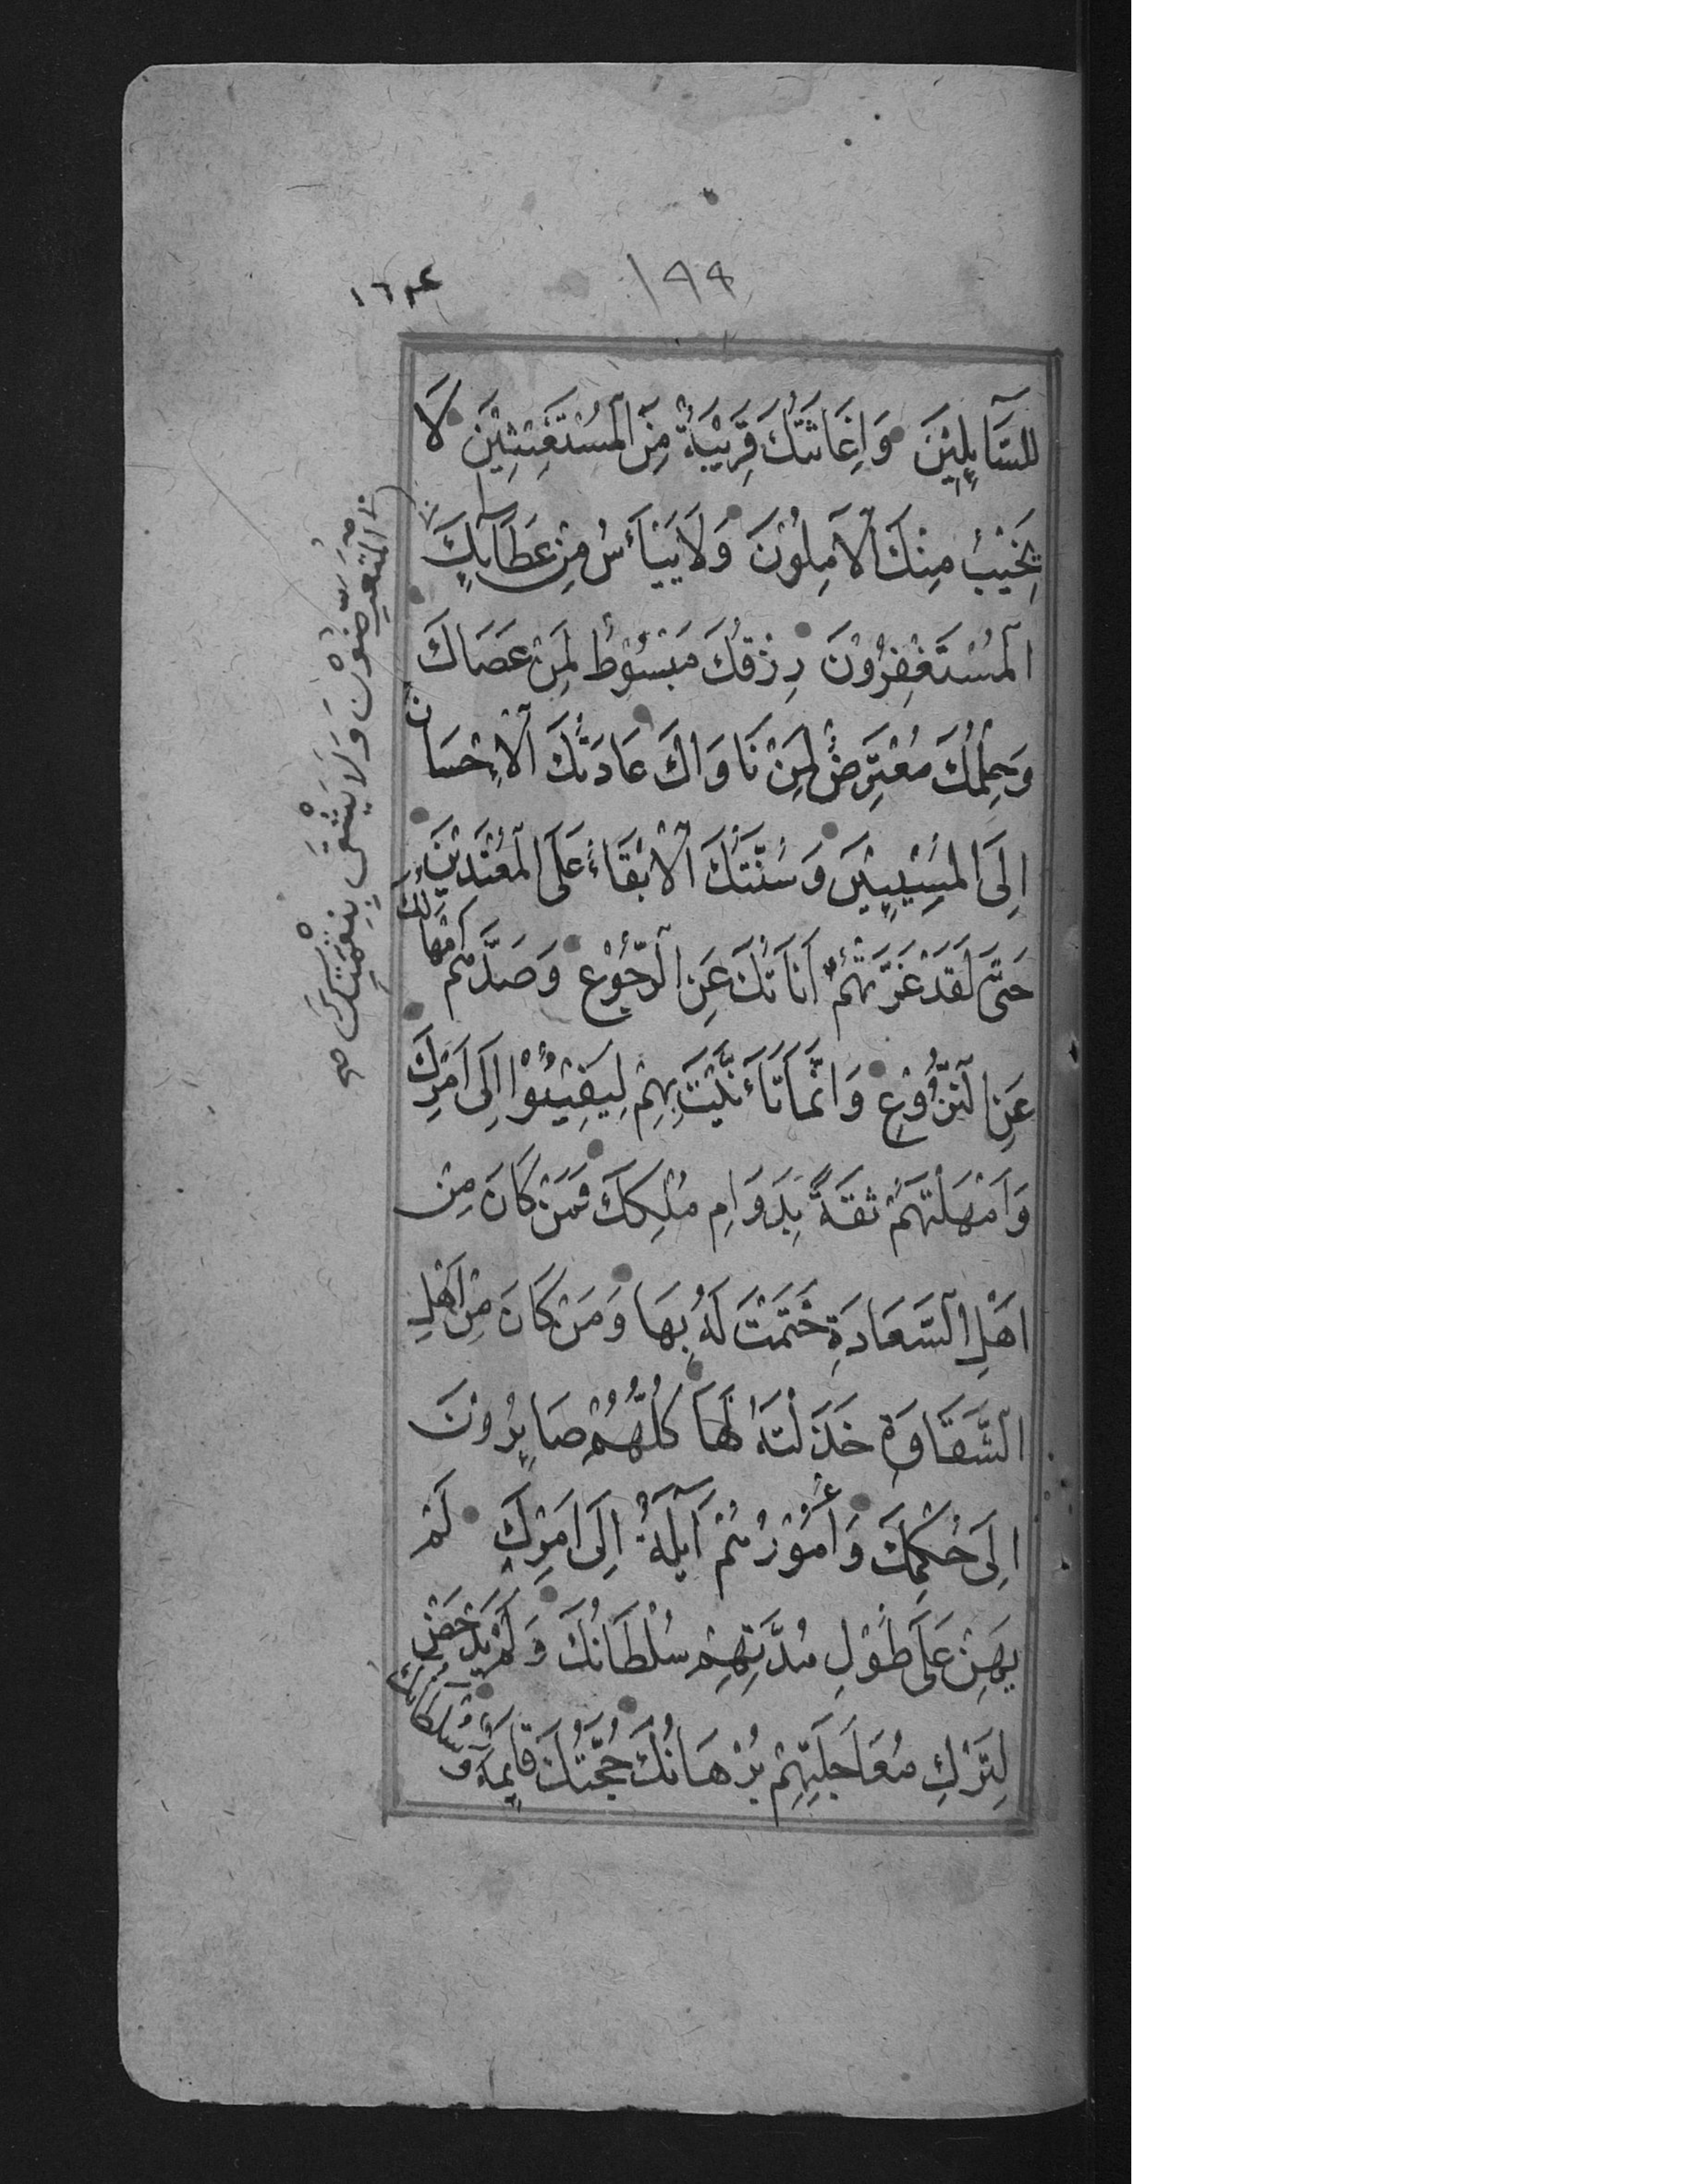 ١٩٩
للسَّآئِلِيْنَ وَاِغَاثَتُكَ قَرِيْبَةٌ مِنَ الْمُسْتَغِيْثِيْنَ لَا
يَخِيْبُ مِنْكَ الْاٰمِلُوْنَ وَلَا يَيْأَسُ مِنْ عَطَآئِكَ
الْمُتَعَرِّضُوْنَ وَلَا يَشْقٰى بِنِقْمَتِكَ صح
الْمُسْتَغْفِرُوْنَ رِزْقُكَ مَبْسُوْطٌ لِمَنْ عَصَاكَ
وَحِلْمُكَ مُعْتَرِضٌ لِمَنْ نَاوَاكَ عَادَتُكَ الْاِحْسَانُ
اِلَى الْمُسِيْئِيْنَ وَسُنَّتُكَ الْاِبْقَاءُ عَلَى الْمُعْتَدِيْنَ
حَتّٰى لَقَدْ غَرَّتْهُمْ اَنَاتُكَ عَنِ الرُّجُوْعِ وَصَدَّهُمْ اِمْهَالُكَ
عَنِ النُّزُوْعِ وَاِنَّمَا تَأَنَّيْتَ بِهِمْ لِيَفِيْئُوْا اِلٰى اَمْرِكَ
وَاَمْهَلْتَهُمْ ثِقَةً بِدَوَامِ مُلْكِكَ فَمَنْ كَانَ مِنْ
اَهْلِ السَّعَادَةِ خَتَمْتَ لَهُ بِهَا وَمَنْ كَانَ مِنْ اَهْلِ
الشَّقَاوَةِ خَذَلْتَهُ لَهَا كُلُّهُمْ صَايِرُوْنَ
اِلٰى حُكْمِكَ وَاُمُوْرُهُمْ اٰئِلَةٌ اِلٰى اَمْرِكَ لَمْ
يَهِنْ عَلٰى طُوْلِ مُدَّتِهِمْ سُلْطَانُكَ وَلَمْ يَدْحَضْ
لِتَرْكِ مُعَاجَلَتِهِمْ بُرْهَانُكَ حُجَّتُكَ قَائِمَةٌ وَسُلْطَانُكَ